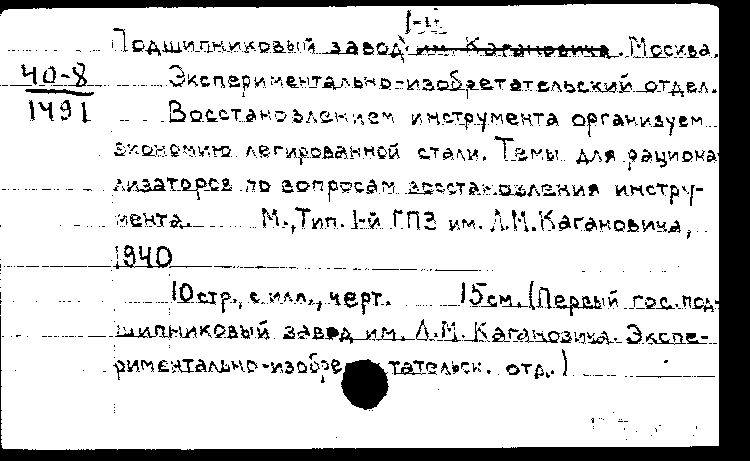 1-й
Подшипниковый завод им. Кагановича. Москва.
40-8 Экспериментально-изобретательский отдел.
1491 Восстановлением инструмента организуем
экономию легированной стали. Темы для рациона
лизаторов по вопросам восстановления инстру-
мента. М., Тип. 1-й ГПЗ им. Л.М. Кагановича,
1940
10 стр., с илл., черт. 15 см. (Первый гос. под-
шипниковый завод им. Л.М. Кагановича. Экспе-
риментально-изобретательск. отд.)